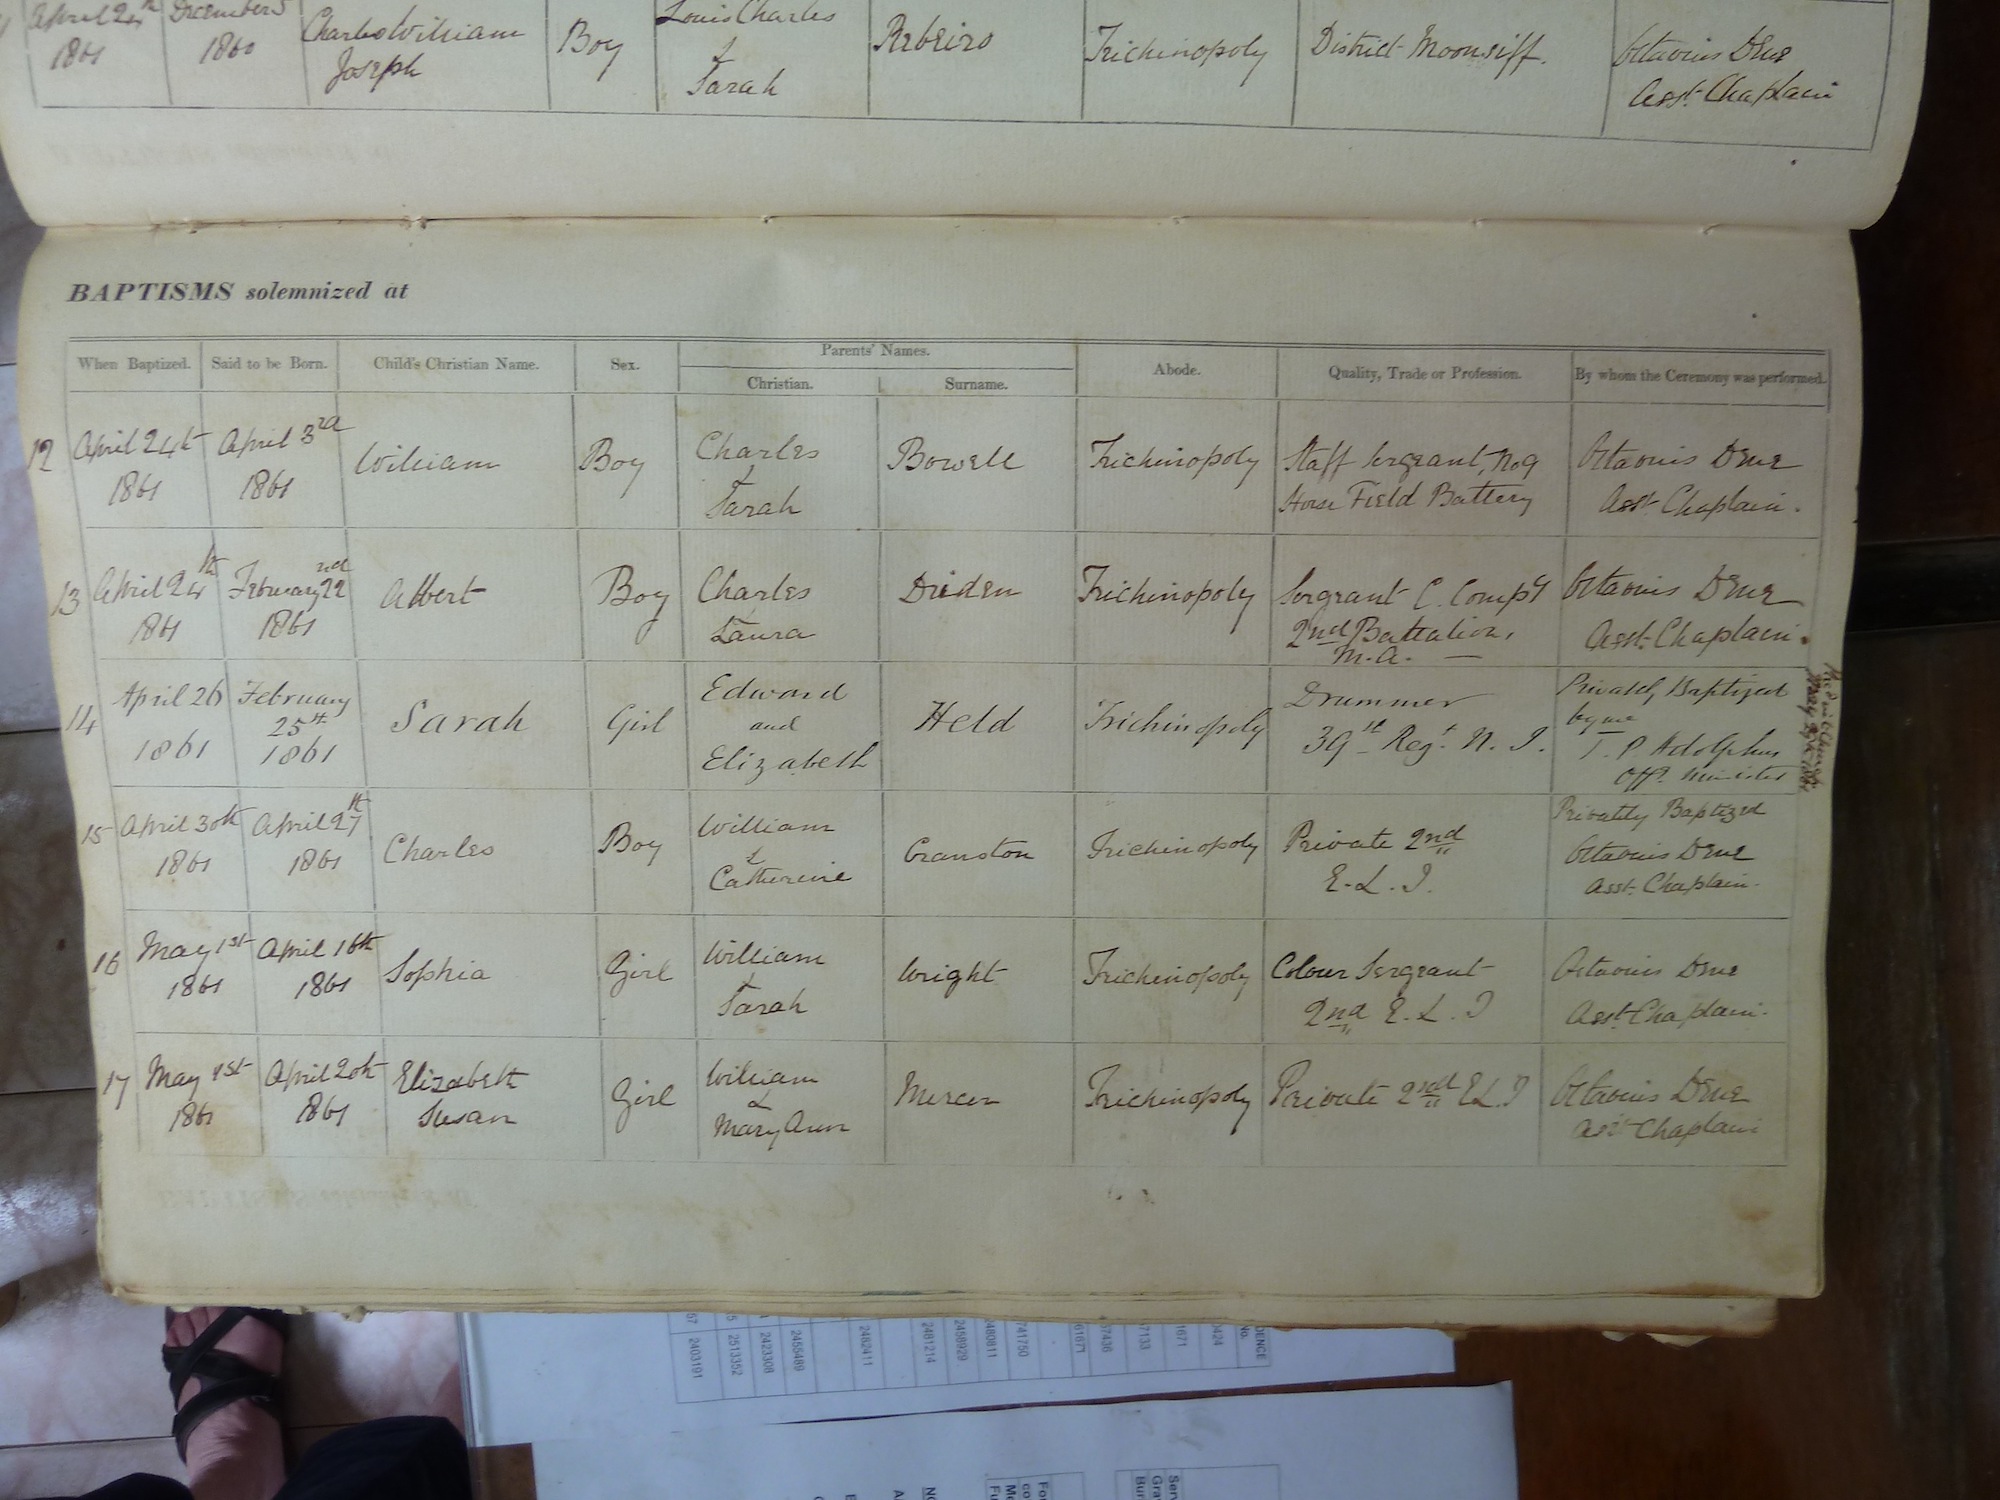 April 24th December 5 Charles William Boy Louis Charles Ribeiro Trichinopoly District Moonsiff. Octavius Dene
1861 1860 Joseph & Sarah Asst. Chaplain
BAPTISMS solemnized at
When Baptized. Said to be Born. Child's Christian Name. Sex. Parents' Names. Abode. Quality, Trade or Profession. By whom the Ceremony was performed.
Christian. Surname.
12 April 24th April 3rd William Boy Charles Bowell Trichinopoly Staff Sergeant, No 9 Octavius Dene
1861 1861 & Sarah Horse Field Battery Asst Chaplain.
13 April 24th February 22nd Albert Boy Charles Driden Trichinopoly Sergeant C. Compy Octavius Dene
1861 1861 & Laura 2nd Battalion, Asst. Chaplain.
M.A.
14 April 26 February Sarah Girl Edward Held Trichinopoly Drummer Privately Baptized
25th and 39st Regt. N. I. by me
1861 1861 Elizabeth T. P. Adolphus
Offg. Minister
15 April 30th April 27th Charles Boy William Cranston Trichinopoly Private 2nd Privately Baptized
1861 1861 & Catherine E. L. I. Octavius Dene
Asst. Chaplain.
16 May 1st April 16th Sophia Girl William Wright Trichinopoly Colour Sergeant Octavius Dene
1861 1861 & Sarah 2nd E. L. I Asst. Chaplain.
17 May 1st April 20th Elizabeth Girl William Mercer Trichinopoly Private 2nd E L. I Octavius Dene
1861 1861 Susan & Mary Ann Asst Chaplain
2403191
2513352
2423308
2455489
2482411
2481214
2458929
480811
741750
61671
07436
7133
1671
0424
No.
DENCE